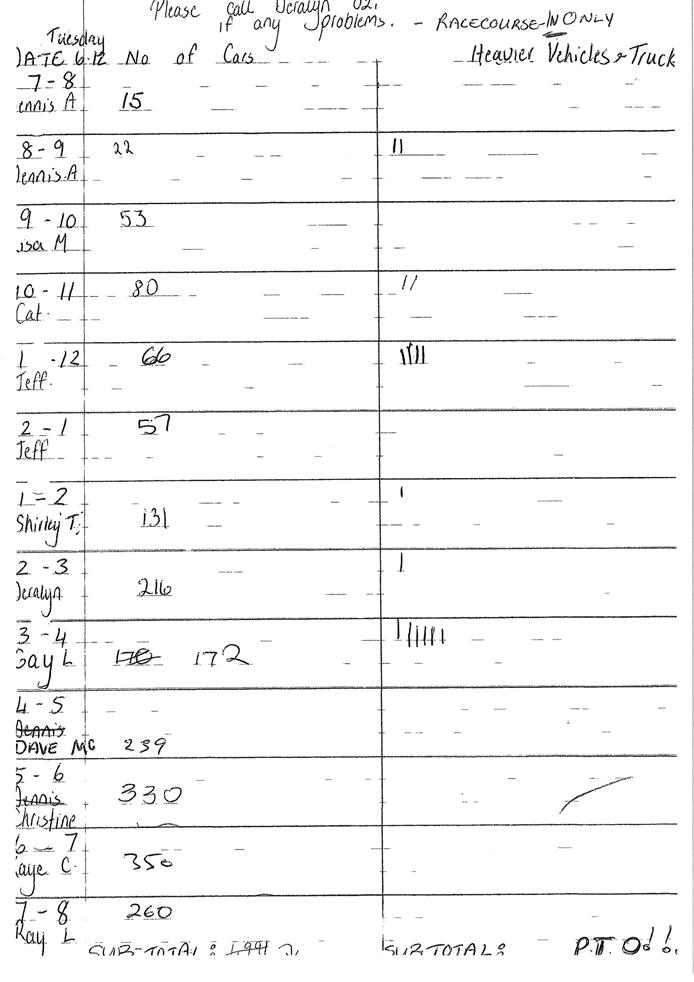 Please call Deralyn 021
if any problems. - RACECOURSE-IN ONLY
Tuesday
DATE 6.12 No of Cars Heavier Vehicles & Truck
7-8
ennis A 15
8-9 22 ||
Dennis.A
9-10 53
isa M
10-11 80 ||
Cat.
1 -12 66 |||||
Jeff.
2-1 57
Jeff
1=2 |
Shirley T. 131
2-3 |
Deralyn 216
3-4 |||||||
Gay L 170 172
4-5
Dennis
DAVE MC 239
5-6
Dennis 330
Christine
6-7
aye C. 350
7-8 260
Ray L
SUB-TOTAL: 1991 SUBTOTAL: P.T.O!!.